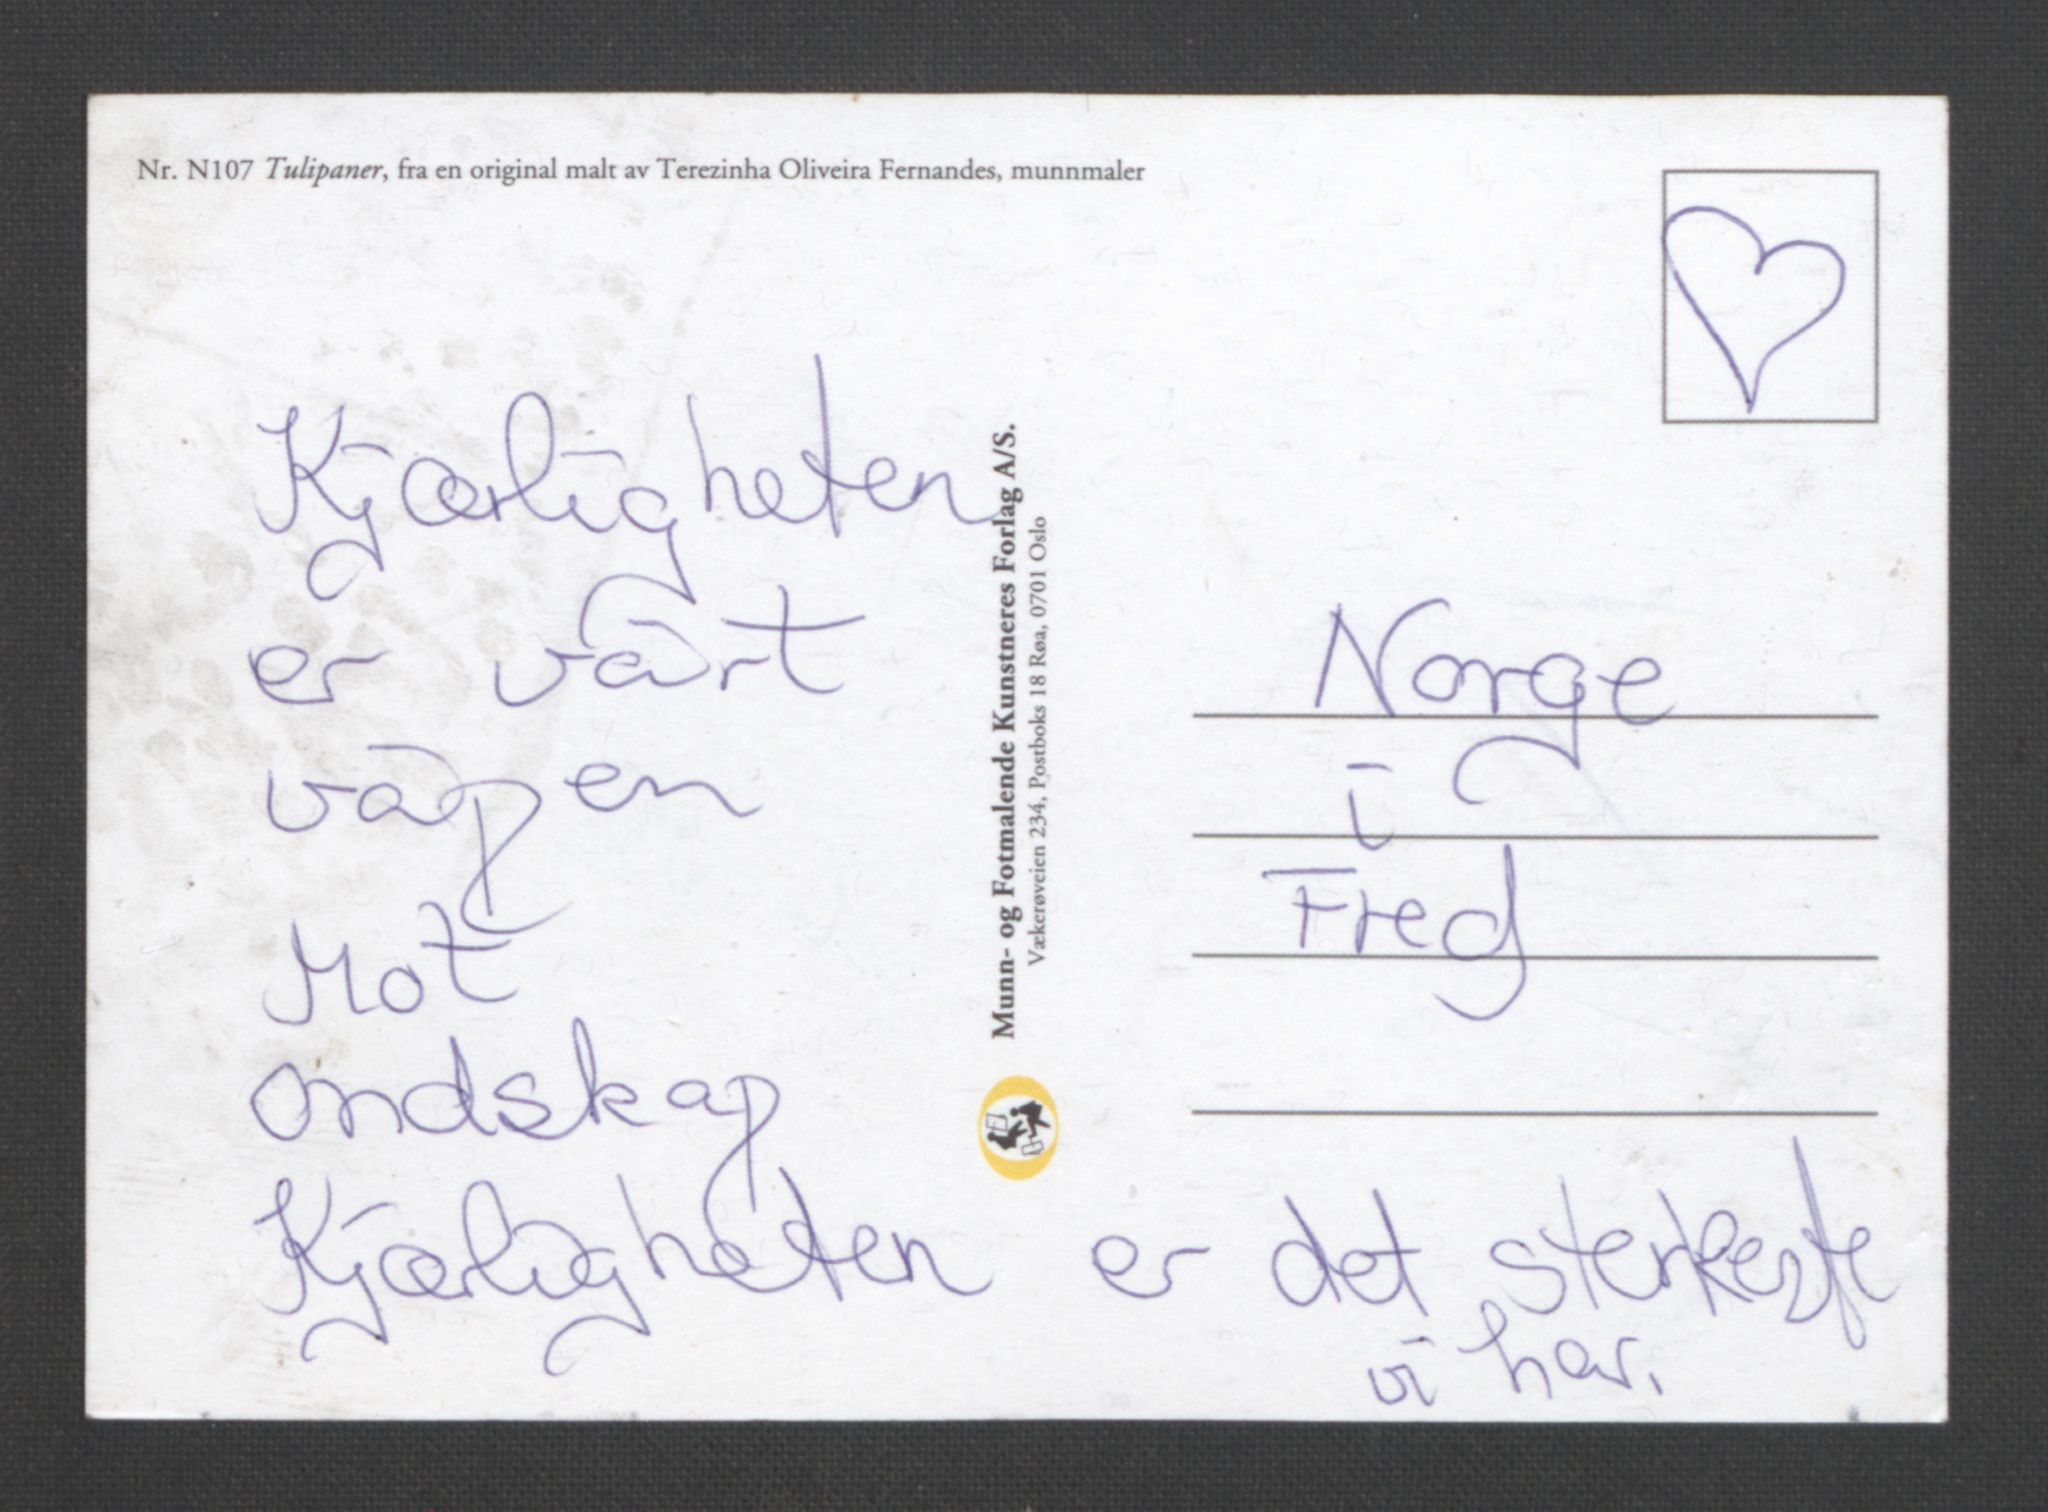 Nr. N107 Tulipaner, fra en original malt av Terezinha Oliveira Fernandes, munnmaler
Kjærligheten
er vårt
våpen
Mot
ondskap
Kjærligheten er det sterkeste
vi har.
Munn- og Fotmalende Kunstneres Forlag A/S.
Vækerøveien 234, Postboks 18 Røa, 0701 Oslo
Norge
i
Fred